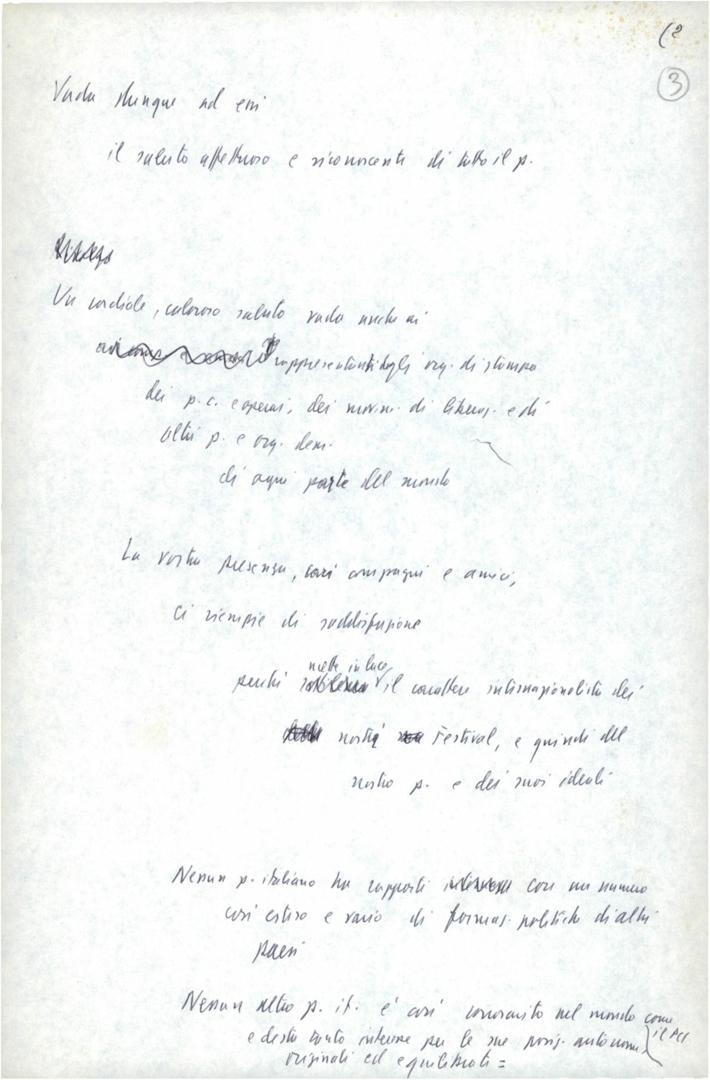 (2
3
Vada dunque ad essi
il saluto affettuoso e riconoscente di tutto il p.
Un cordiale, caloroso saluto vada anche ai
rappresentanti degli org. di stampa
dei p.c. e operai, dei movim. di liberaz. e di
altri p. e org. dem.
di ogni parte del mondo
La vostra presenza, cari compagni e amici,
ci riempie di soddisfazione
mette in luce
perché il carattere internazionalista dei
nostri Festival, e quindi del
nostro p. e dei suoi ideali
Nessun p. italiano ha rapporti con un numero
così esteso e vario di formaz. politiche di altri
paesi
Nessun altro p. it. è così conosciuto nel mondo come
il PCI
e desta tanto interesse per le sue posiz. autonome
originali ed equilibrate =